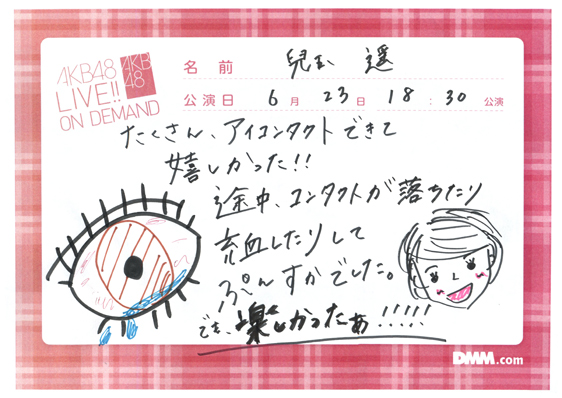 AKB48
LIVE!!
ON DEMAND
AKB
48
名前 兒玉 遥
公演日 6月 23日 18:30 公演
たくさん、アイコンタクトできて
嬉しかった!!
途中、コンタクトが落ちたり
充血したりして
ぷんすかでした。
でも、楽しかったぁ!!!!!
DMM.com